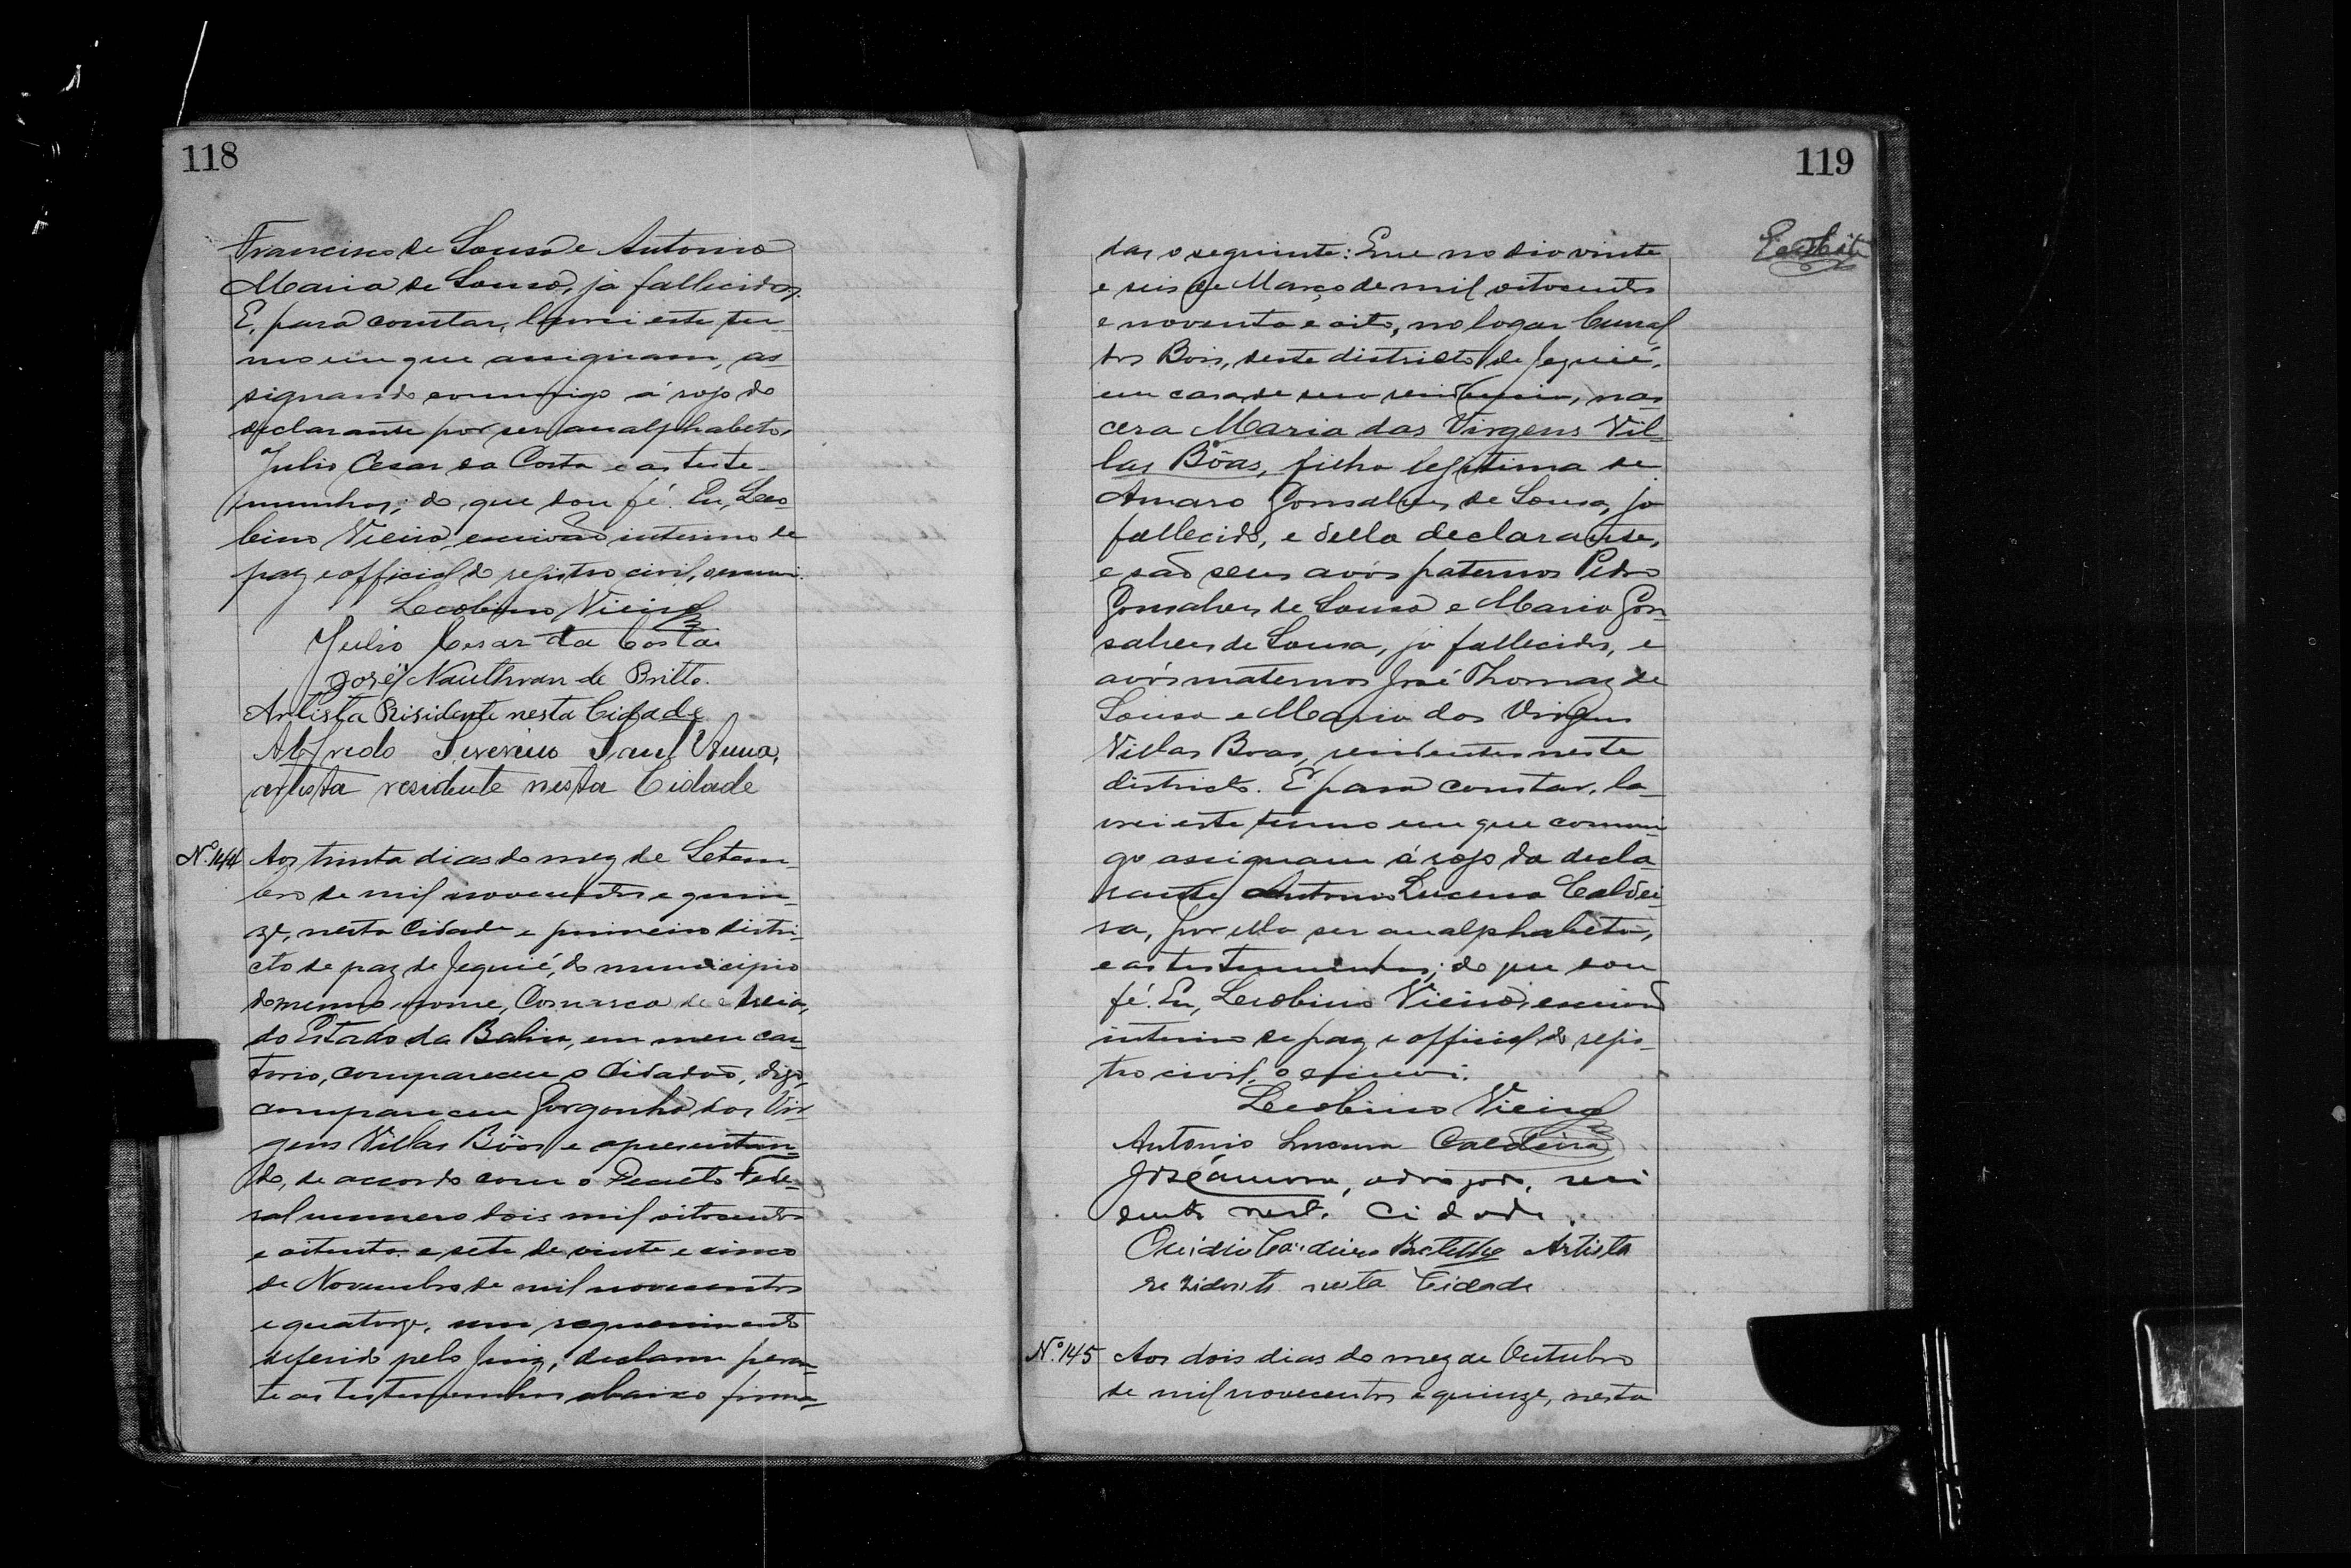 118
Francisco de Sousa e Antonia
Maria de Sousa, já fallecidos.
E, para constar, lavrei este ter-
mo em que assignam, as-
signando commigo á rogo do
declarante por ser analphabeto,
Julio Cesar da Costa e as teste-
munhas; do que dou fé. Eu, Leo-
bino Vieira, escrivão interino de
paz e official do registro civil, escrevi.
Leobino Vieira
Julio Cesar da Costa
José Naulthvan de Britto.
Artista Risidente nesta Cidade
Alfredo Severino Sant'Anna,
artista residente nesta Cidade
Nº 144 Aos trinta dias do mez de Setem-
bro de mil novecentos e quin-
ze, nesta Cidade e primeiro distri-
cto de paz de Jequié, do municipio
do mesmo nome, Comarca de Areia,
do Estado da Bahia, em meu car-
torio, compareceu o Cidadão, digo,
compareceu Gorgonha das Vir-
gens Villas Bôas e apresentan-
do, de accordo com o Decreto Fede-
ral numero dois mil oitocentos
e oitenta e sete de vinte e cinco
de Novembro de mil novecentos
e quatorze, um requerimento
deferido pelo Juiz, declarou peran-
te as testemunhas abaixo firma-
119
das o seguinte: Que no dia vinte
e seis de Março de mil oitocentos
e noventa e oito, no logar Curral
dos Bois, deste districto de Jequié,
em casa de sua residencia, nas-
cera Maria das Virgens Vil-
las Bôas, filha legitima de
Amaro Gonsalves de Sousa, já
fallecido, e della declarante,
e são seus avós paternos Pedro
Gonsalves de Sousa e Maria Gon-
salves de Sousa, já fallecidos, e
avós maternos José Thomaz de
Sousa e Maria das Virgens
Villas Boas, residentes neste
districto. E para constar, la-
vrei este termo em que commi-
go assignam á rogo da decla-
rante Antonio Lucena Caldei-
ra, por ella ser analphabeta,
e as testemunhas; do que dou
fé. Eu, Leobino Vieira, escrivão
interino de paz e official do regis-
tro civil, o escrevi.
Leobino Vieira
Antonio Lucena Caldeira
José, advogado, resi
dente nest. Cidade.
Ouidio Cordeiro Botelho Artista
rezidente nesta Cidade
Nº 145 Aos dois dias do mez de Outubro
de mil novecentos e quinze, nesta